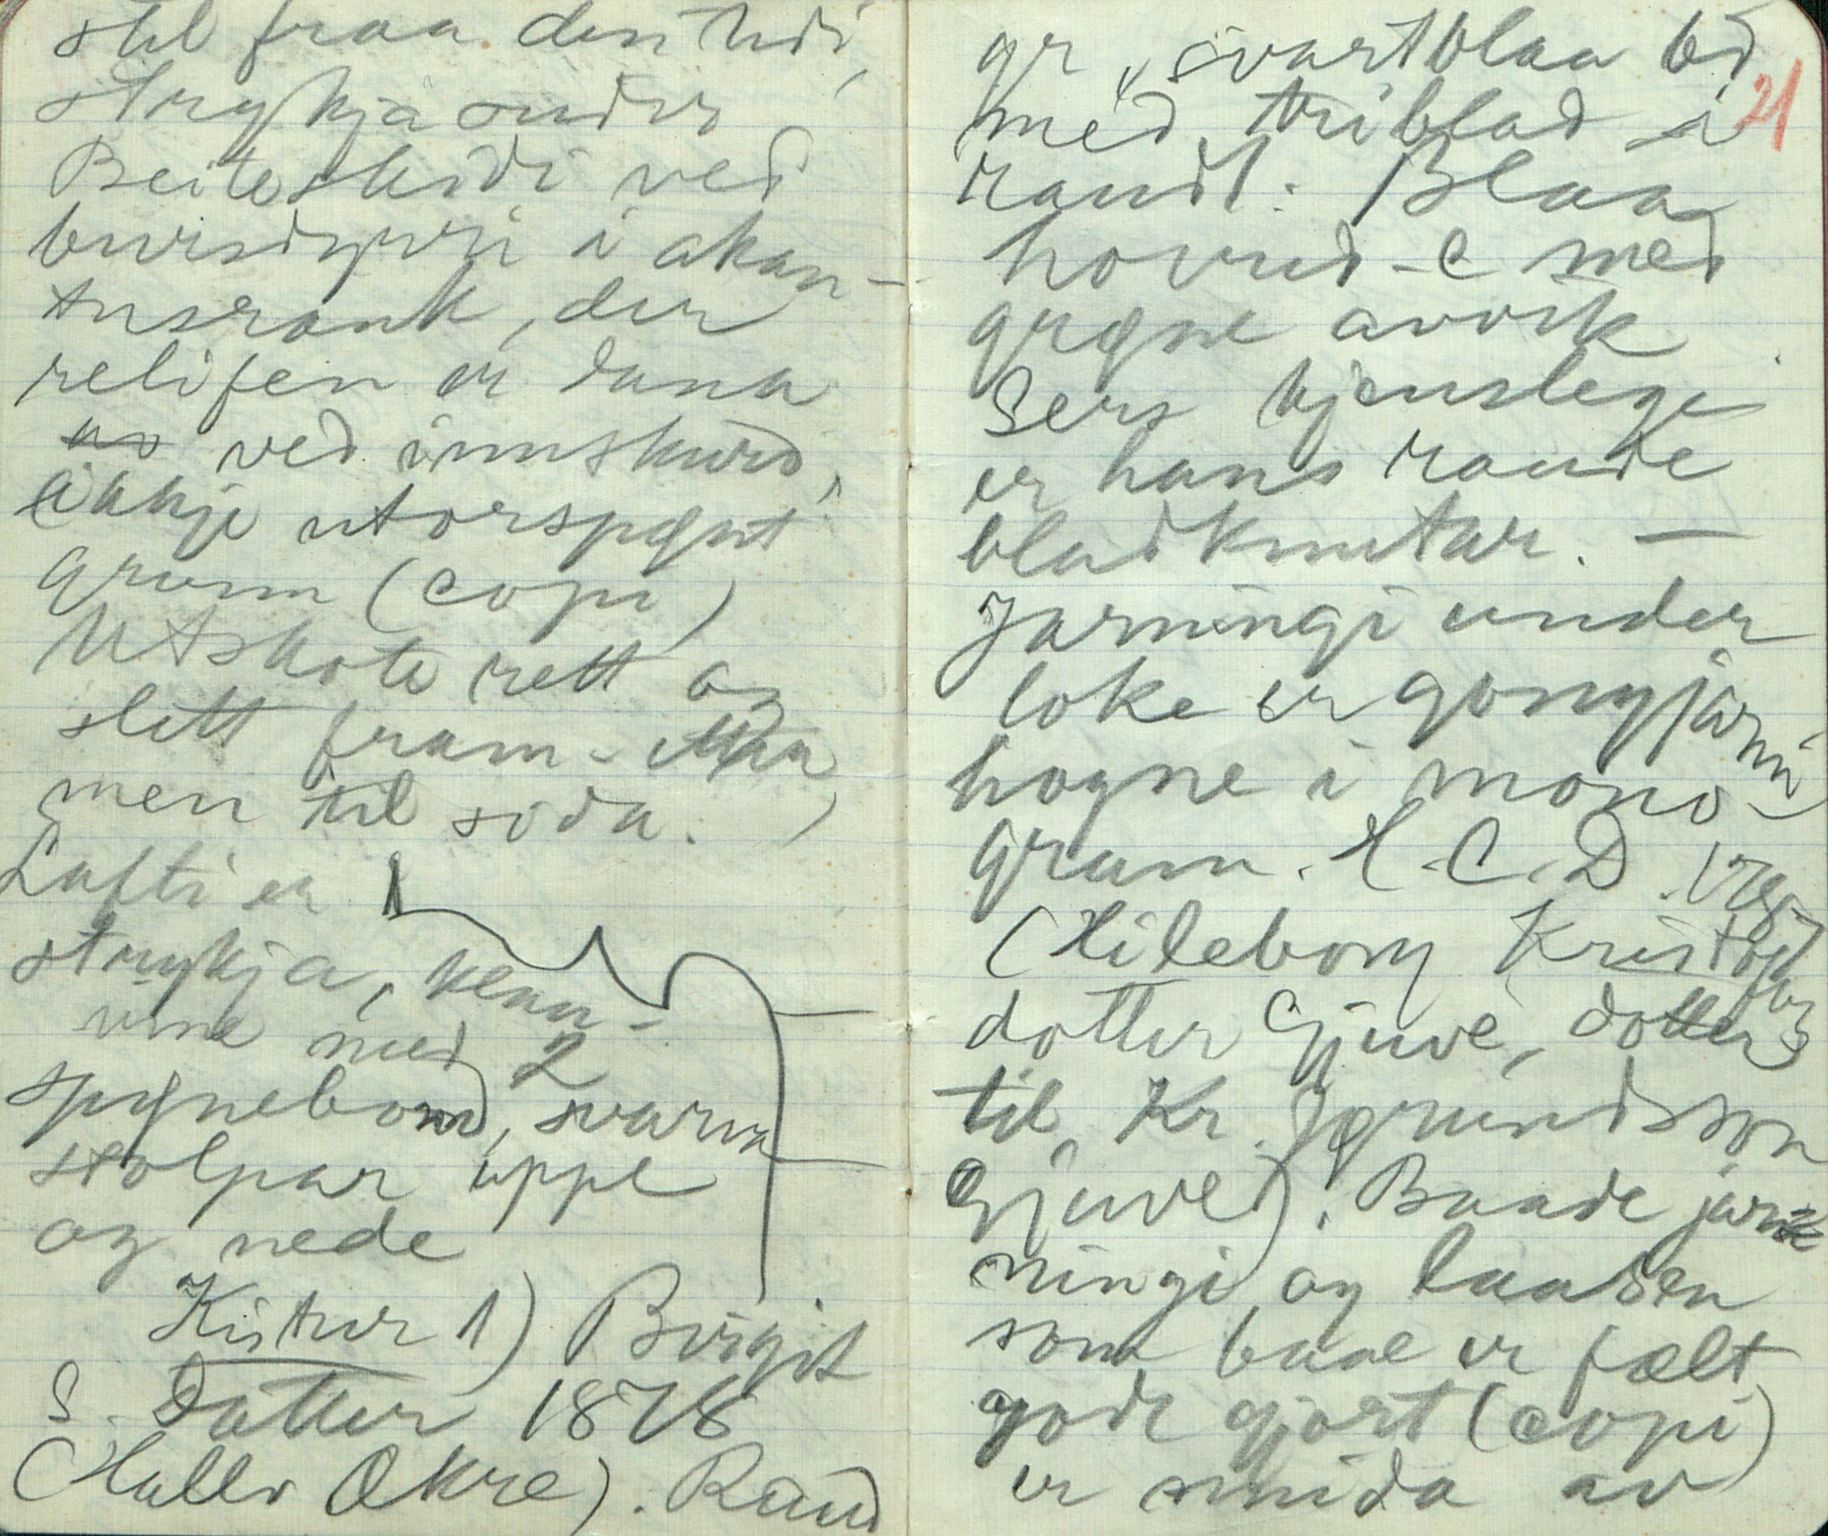 stil fraa den tidi,
strykja under
Beiteskidi ved
buirsdyrri i akan-
tusrank, der
relifen er dana
av ved innskurd,
ikkje utorspent
grunn (copi)
Utskote rett og
slett fram-
men til sida.
Lufti er
strykja, klan-
vine med 2
spynebond, svarva
stolpar uppe
og nede
Kistur 1) Birgit
S. Datter 1878
(Hallv Økre). Raud
gr, svartblaa bd 21
med triblad i
raudt. Blaa
hovud-c med
grøne avvik
Sers kjenslege
er hans raude
bladknutar. –
Jarningi under
loke er gongjarni
hogne i mono-
gram. H. C. D.
(Hileborg Kristofer
dotter Gjuve, dotter
til Kr. Jørundsson
Gjuve). Baade jar
ningi og laasen
som baae er fælt
gode gjort (copi)
er smida av